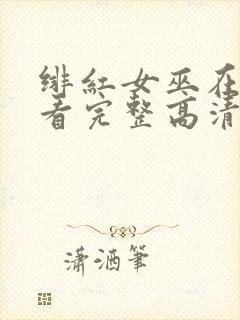 绯红女巫在
看完整高清
潇洒筆